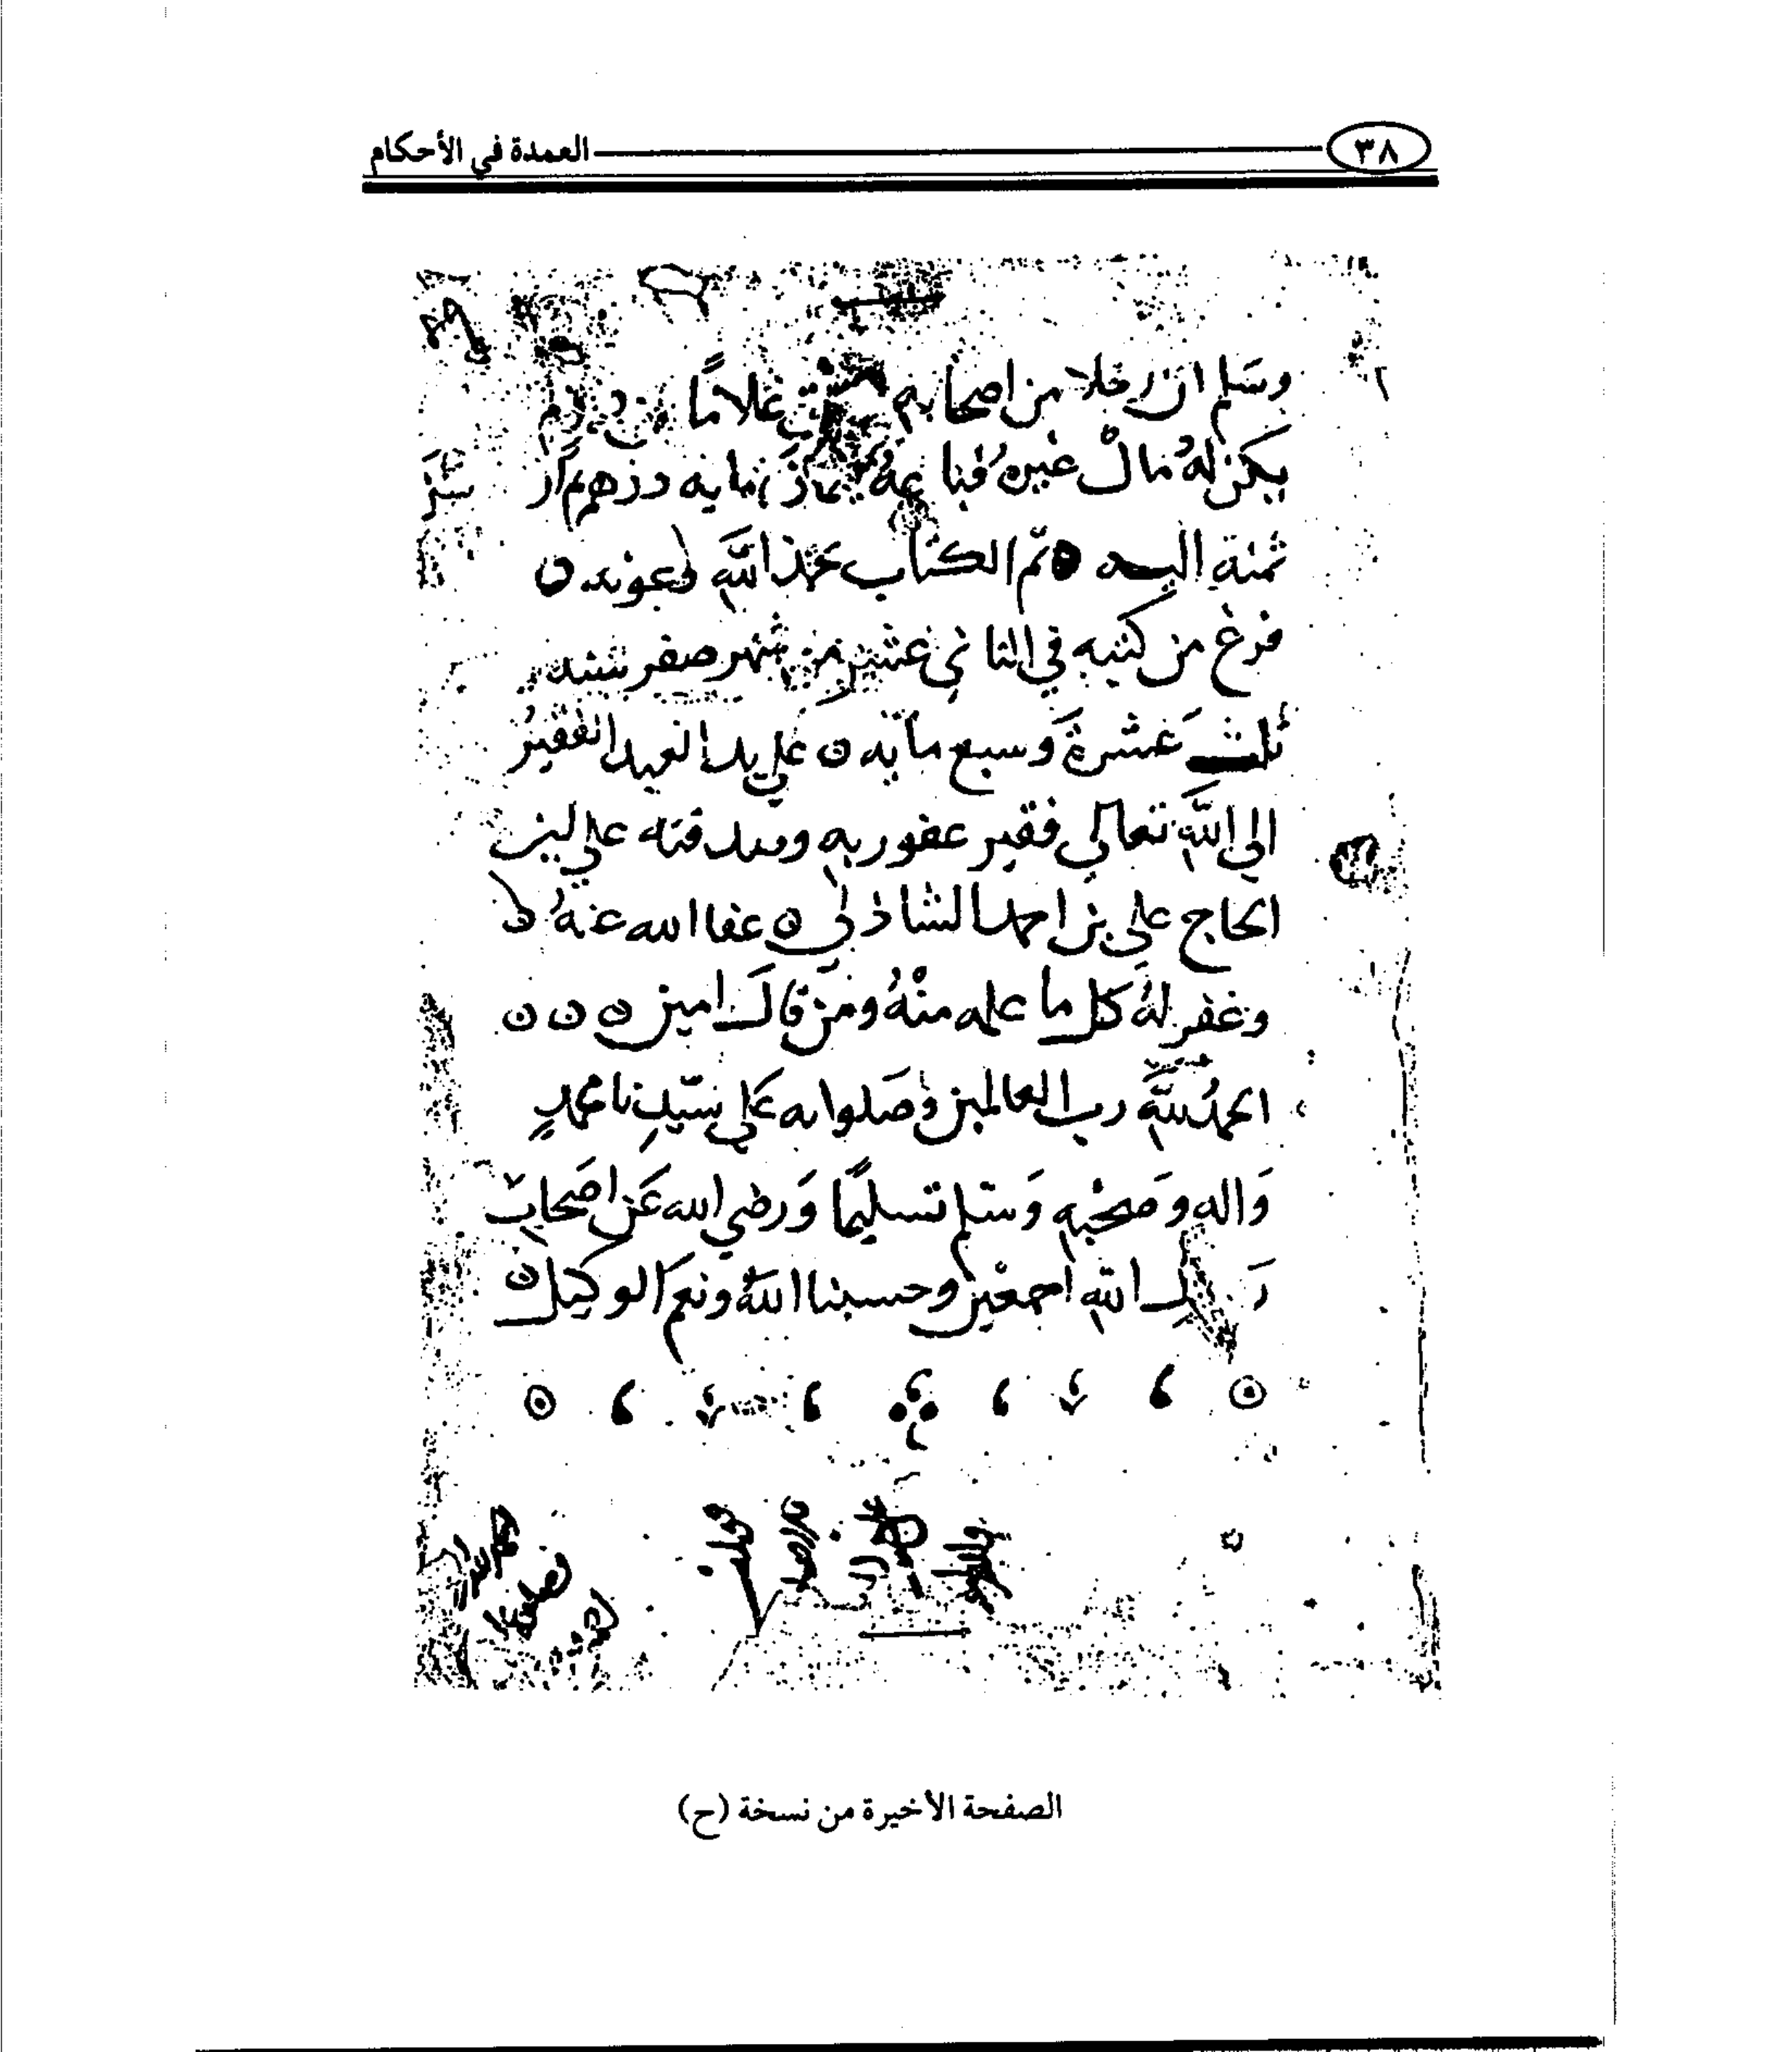 ٣٨
العمدة في الأحكام
وسلم ان رجلا من اصحابه غلامًا
يكن له مال غيره فباعه بثمان مايه درهم ثم ارسل
ثمنه اليه تم الكتاب بحمد الله وعونه
فرغ من كتبه في الثاني عشر من شهر صفر سنه
ثلث عشرة وسبع مايه على يد العبد الفقير
الى الله تعالى فقير عفو ربه وصدقته على بن
الحاج علي بن احمد الشاذلي عفا الله عنه
وغفر له كل ما علمه منه ومن قال امين
الحمد لله رب العالمين وصلواته على سيدنا محمد
واله وصحبه وسلم تسليمًا ورضي الله عن اصحاب
الله اجمعين وحسبنا الله ونعم الوكيل
الصفحة الأخيرة من نسخة (ح)